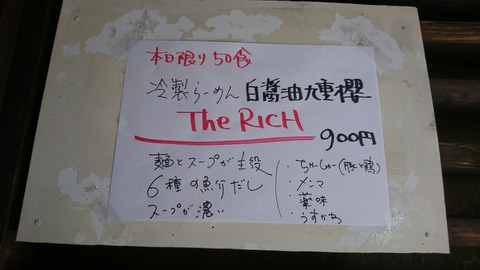 本日限り50食
冷製らーめん 白醤油九重櫻
The RICH
900円
麺とスープが主役
6種の魚介だし
スープが濃い
・ちゃーしゅー(豚と鶏)
・メンマ
・薬味
・うすかわ